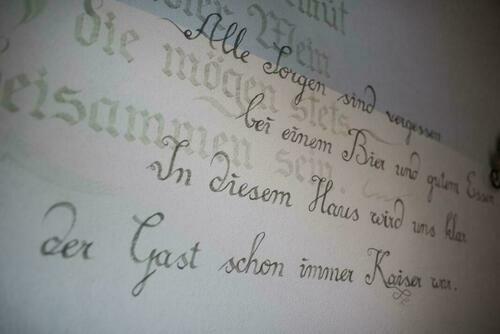 mut
Wein
die mögen stets
beisammen sein.
Alle Sorgen sind vergessen
bei einem Bier und gutem Essen
In diesem Haus wird uns klar
der Gast schon immer Kaiser war.